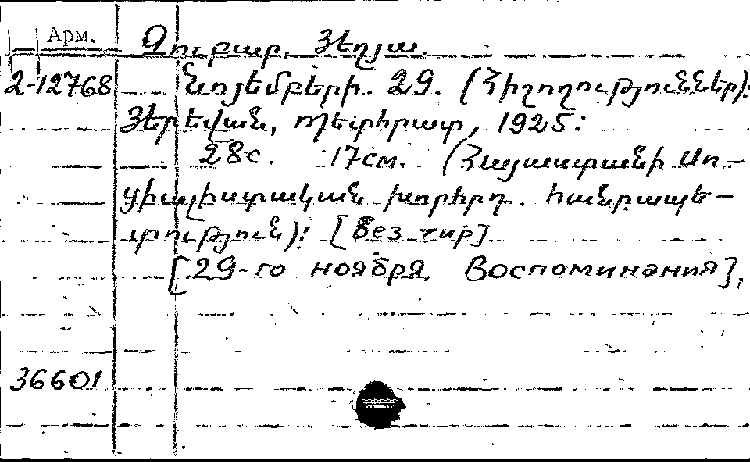 Арм.
Զուբար, Յեղյա.
2-12768 Նոյեմբերի 29. (Հիշողություններ):
Յերևան, Պետհրատ, 1925:
28с. 17см. (Հայաստանի Սո-
ցիալիստական խորհրդ. հանրապե-
տություն): [Без тир]
[29-го ноября. Воспоминания].
36601